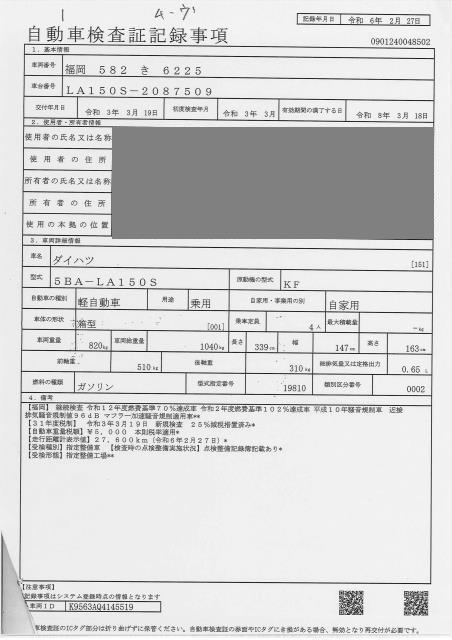 1 ムーヴ
自動車検査証記録事項
記録年月日 令和 6年 2月 27日
0901240048502
1．基本情報
車両番号 福岡 582 き 6225
車台番号 LA150S－2087509
交付年月日 令和 3年 3月 19日 初度検査年月 令和 3年 3月 有効期間の満了する日 令和 8年 3月 18日
2．使用者・所有者情報
使用者の氏名又は名称
使用者の住所
所有者の氏名又は名称
所有者の住所
使用の本拠の位置
3．車両詳細情報
車名 ダイハツ [151]
型式 5BA－LA150S 原動機の型式 KF
自動車の種別 軽自動車 用途 乗用 自家用・事業用の別 自家用
車体の形状 箱型 [001] 乗車定員 4人 最大積載量 －kg
車両重量 820kg 車両総重量 1040kg 長さ 339cm 幅 147cm 高さ 163cm
前軸重 510kg 後軸重 310kg 総排気量又は定格出力 0.65 L
燃料の種類 ガソリン 型式指定番号 19810 類別区分番号 0002
4．備考
【福岡】 継続検査 令和12年度燃費基準70％達成車 令和2年度燃費基準102％達成車 平成10年騒音規制車 近接
排気騒音規制値96dB マフラー加速騒音規制適用車**
【31年度税制】 令和3年3月19日 新規検査 25％減税措置済み*
【自動車重量税額】￥5，000 本則税率適用*
【走行距離計表示値】27，600km（令和6年2月27日）*
【受検種別】指定整備車 【検査時の点検整備実施状況】点検整備記録簿記載あり*
【受検形態】指定整備工場**
【注意事項】
記録事項はシステム登録時点の情報となります
車両ID K9563AQ4145519
車検査証のICタグ部分は折り曲げずに保管ください。自動車検査証の券面やICタグにき損がある場合、無効となり再交付が必要です。